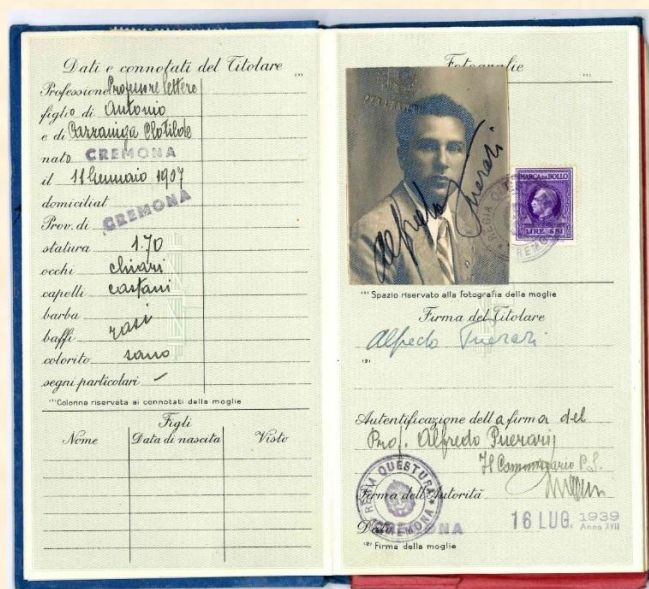 Dati e connotati del Titolare
Professione Professore lettere
figlio di Antonio
e di Carraniga Clotilde
nato CREMONA
il 11 Gennaio 1907
domiciliat
Prov. di CREMONA
statura 1.70
occhi chiari
capelli castani
barba
baffi rasi
colorito sano
segni particolari –
Colonna riservata ai connotati della moglie
Figli
Nome Data di nascita Visto
Fotografie
Alfredo Puerari
MARCA DA BOLLO
LIRE SEI
REGIA QUESTURA CREMONA
Spazio riservato alla fotografia della moglie
Firma del Titolare
Alfredo Puerari
Autentificazione della firma del
Prof. Alfredo Puerari
Il Commissario P.S.
REGIA QUESTURA CREMONA
Firma dell'Autorità
Data CREMONA 16 LUG. 1939
Anno XVII
Firma della moglie